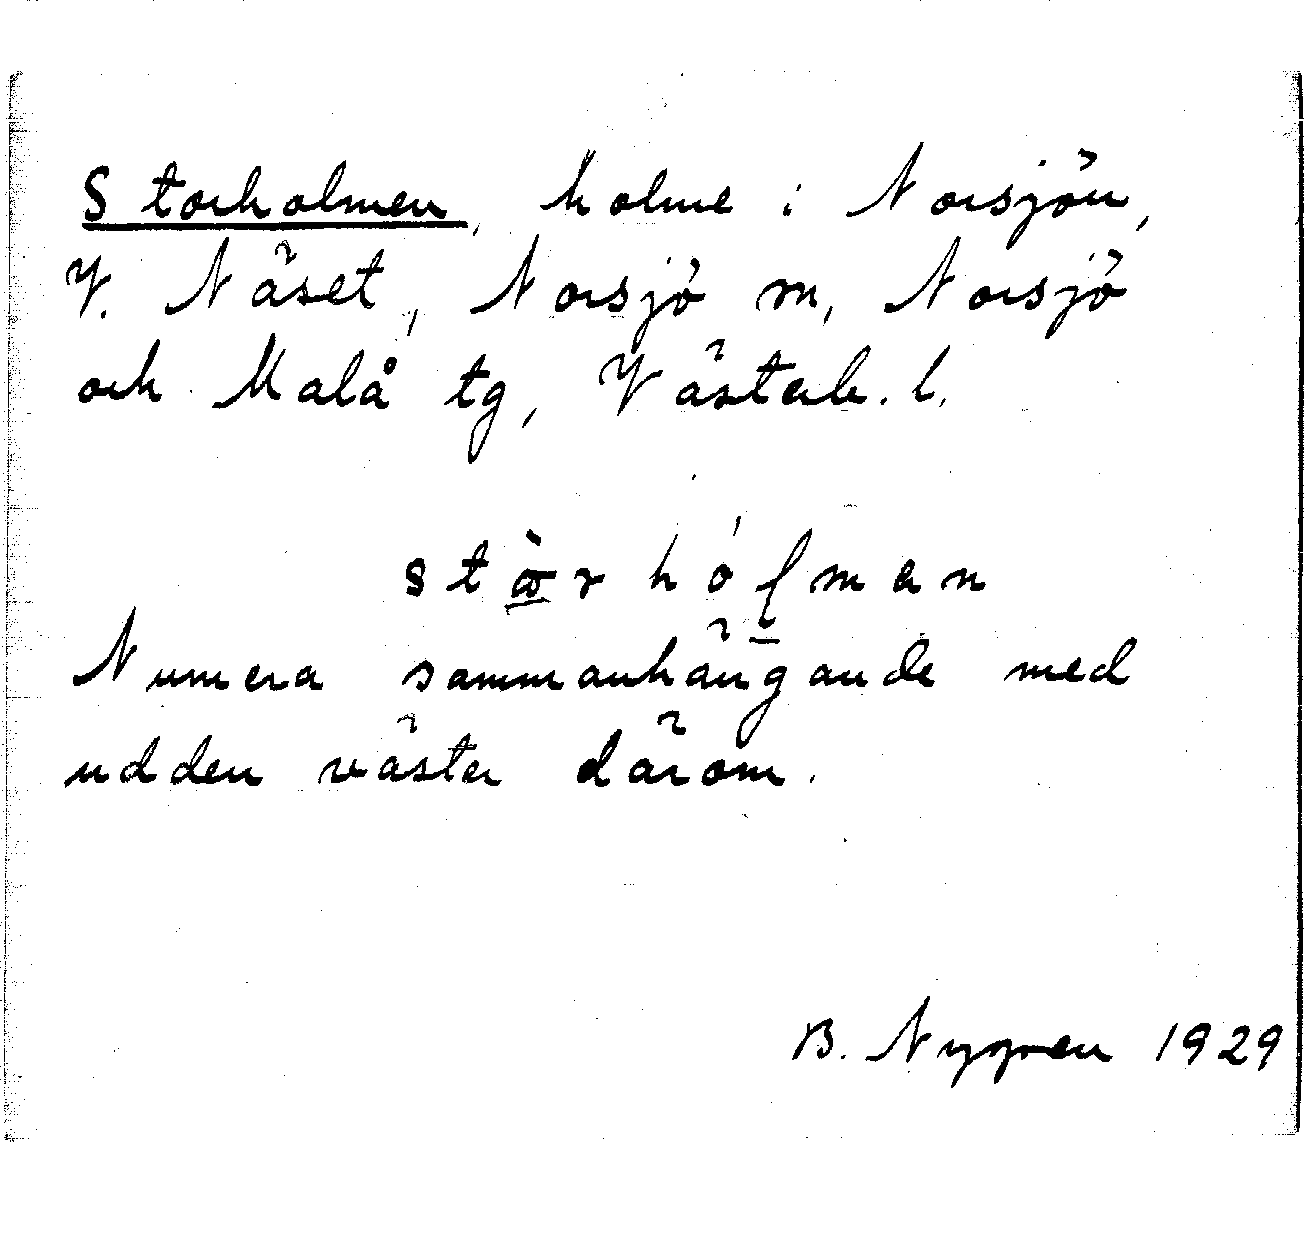 Storholmen, holme i Norsjön,
V. Näset, Norsjö sn, Norsjö
och Malå tg, Västerb. l.
Numera sammanhängande med
udden väster därom.
B. Nygren 1929